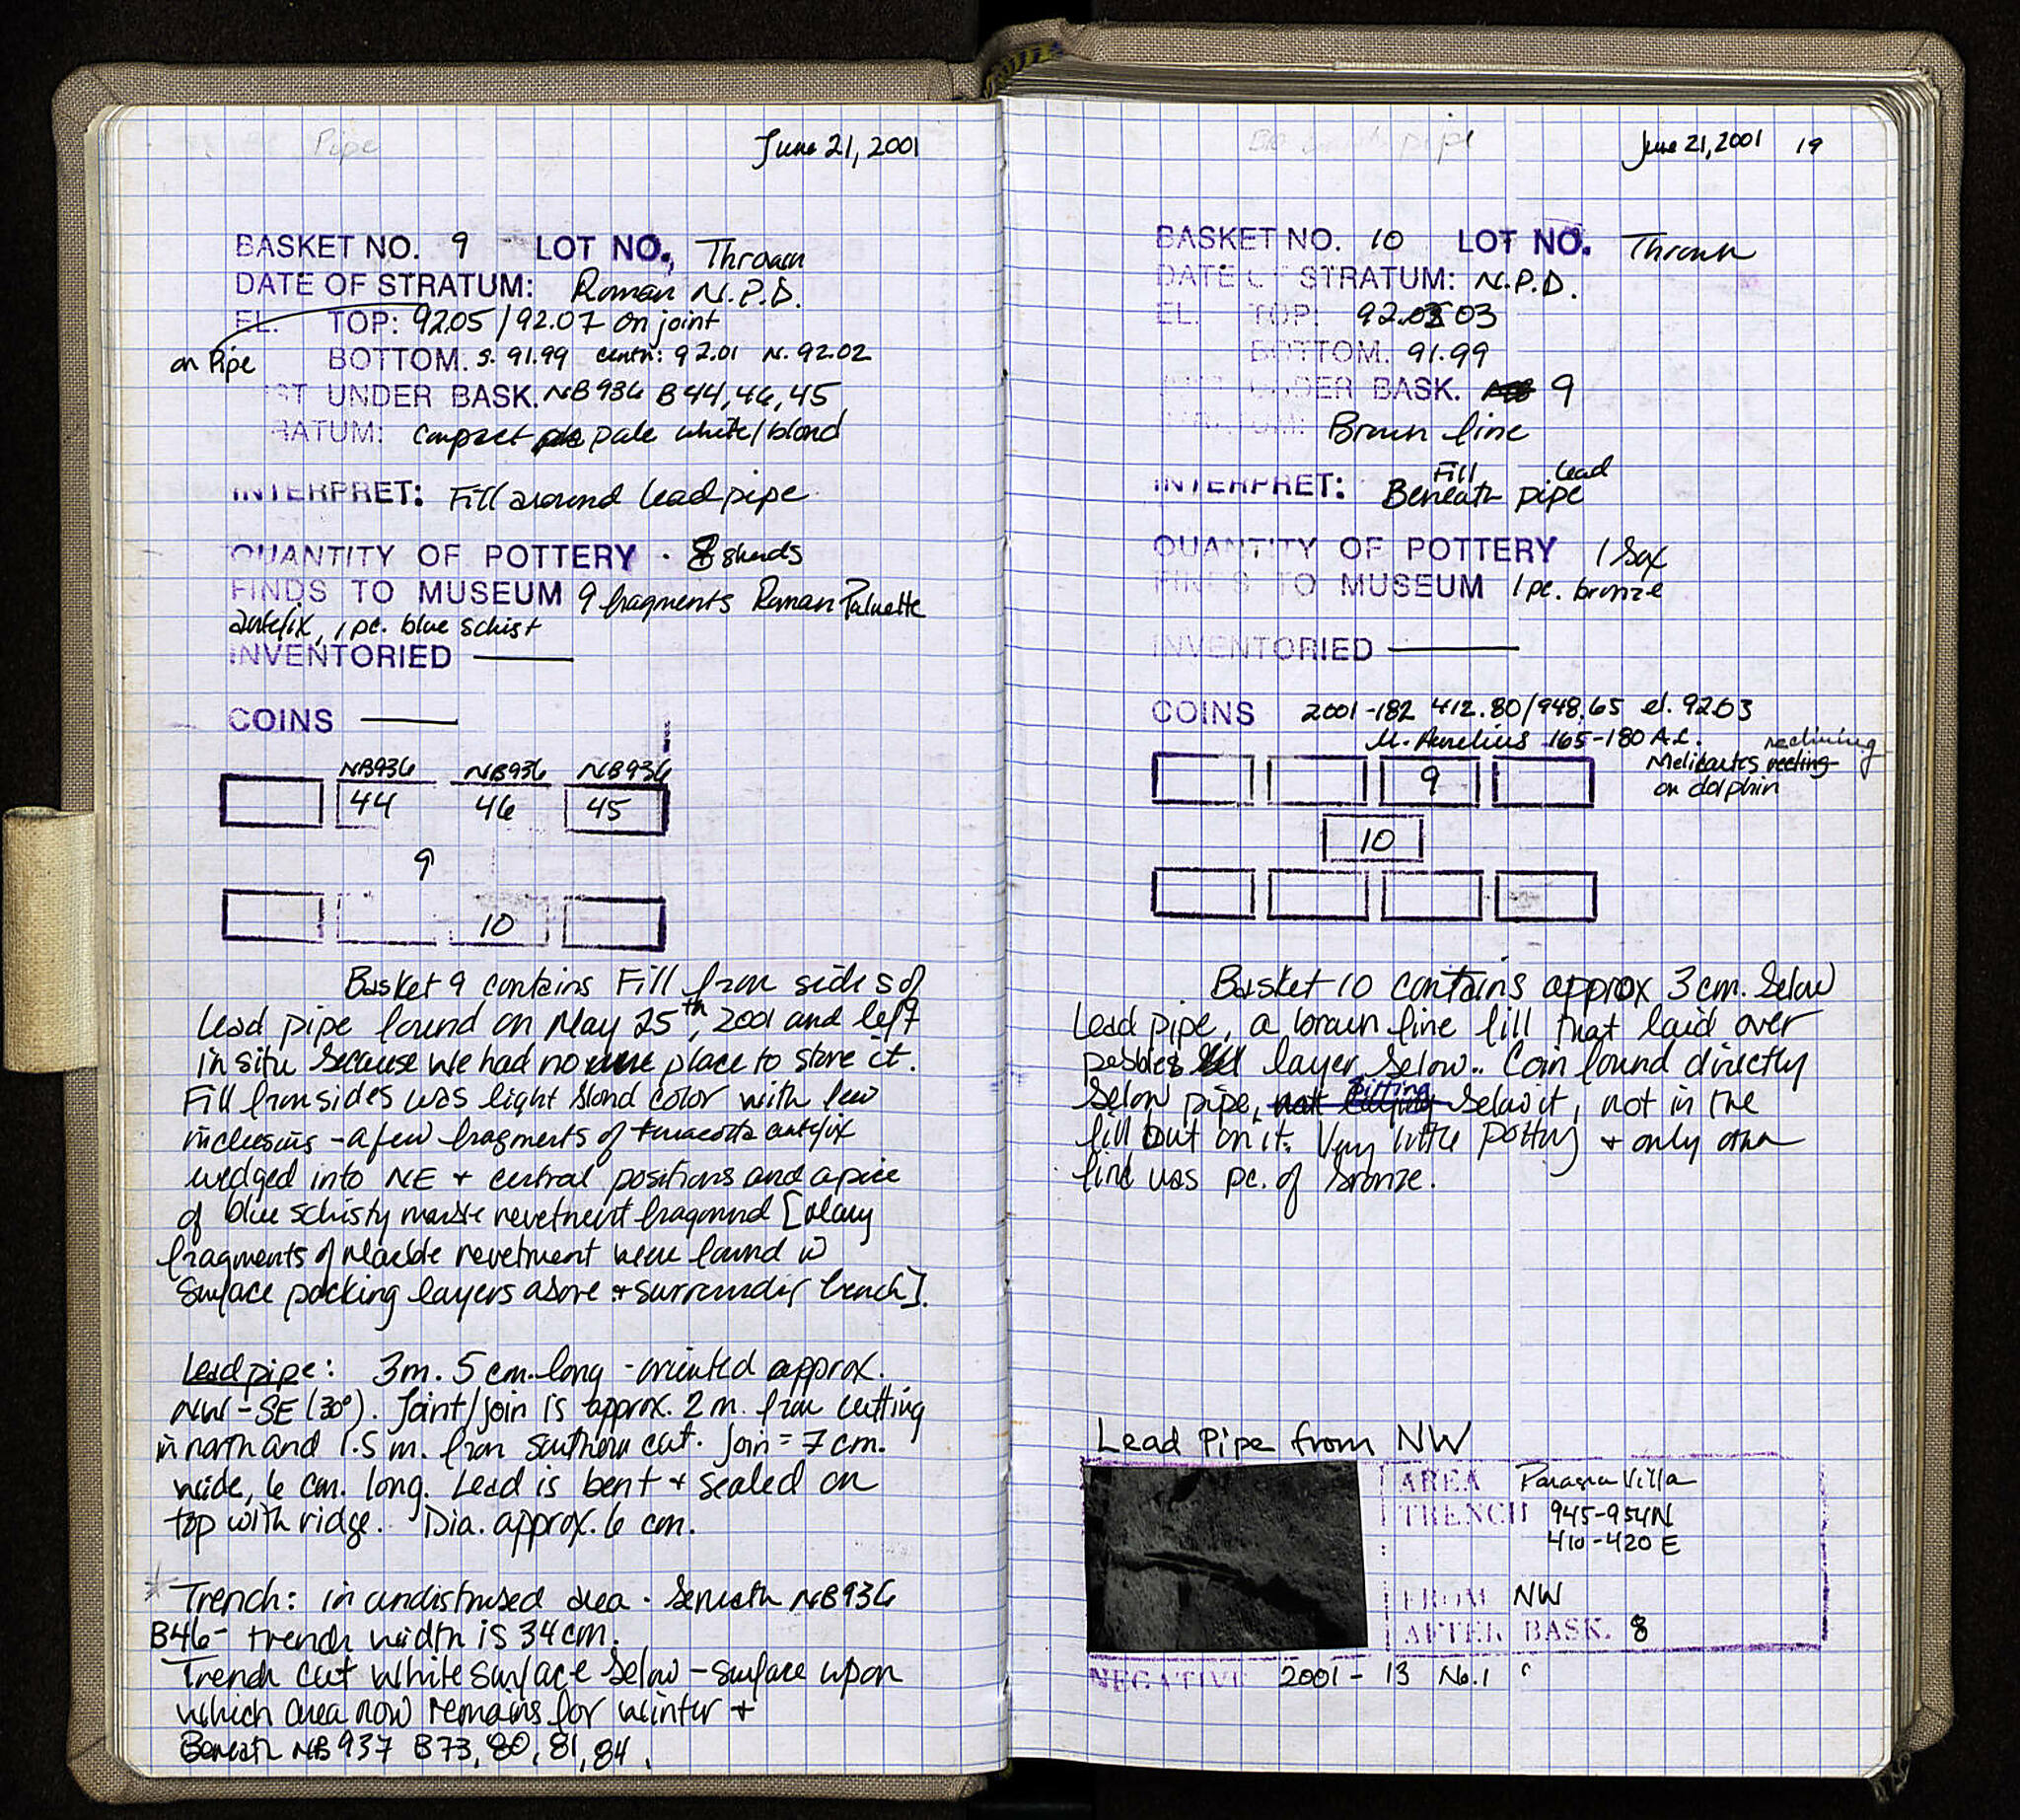 Pipe
June 21, 2001
BASKET NO. 9 LOT NO. Thrown
DATE OF STRATUM: Roman N.P.D.
EL. TOP: 92.05 / 92.07 on joint
on Pipe
BOTTOM. S. 91.99 centr: 92.01 N. 92.02
ST UNDER BASK. NB936 B44, 46, 45
RATUM: compact pale white/blond
INTERPRET: Fill around lead pipe
QUANTITY OF POTTERY 8 sherds
FINDS TO MUSEUM 9 fragments Roman Palmette
antefix, 1 pc. blue schist
INVENTORIED —
COINS —
NB936 NB936 NB936
44 46 45
9
10
Basket 9 contains Fill from sides of
Lead pipe found on May 25th, 2001 and left
in situ because we had no place to store it.
Fill from sides was light blond color with few
inclusions - a few fragments of terracotta antefix
wedged into NE + central positions and a piece
of blue schisty marble revetment fragment [Many
fragments of Marble revetment were found in
surface packing layers above + surrounding trench].
Lead pipe: 3m. 5 cm. long - oriented approx.
NW-SE (30°). Joint/join is approx. 2 m. from cutting
in north and 1.5 m. from southern cut. Join = 7 cm.
wide, 6 cm. long. Lead is bent + sealed on
top with ridge. Dia. approx. 6 cm.
* Trench: in undisturbed area. beneath NB936
B46 - trench width is 34 cm.
Trench cut white surface below - surface upon
which area now remains for winter +
Beneath NB 937 B73, 80, 81, 84.
pipe
June 21, 2001 19
BASKET NO. 10 LOT NO. Thrown
DATE OF STRATUM: N.P.D.
EL. TOP: 92.03
BOTTOM. 91.99
UNDER BASK. 9
Brown fine
Fill Lead
INTERPRET: Beneath pipe
QUANTITY OF POTTERY 1 Bag
FINDS TO MUSEUM 1 pc. bronze
INVENTORIED —
COINS 2001-182 412.80/948.65 el. 92.03
M. Aurelius 165-180 A.C. reclining
Melikertes resting
on dolphin
9
10
Basket 10 contains approx 3 cm. below
Lead pipe, a brown fine fill that laid over
pebbles layer below. Coin found directly
below pipe, not sitting below it, not in the
fill but on it. Very little pottery + only other
find was pc. of bronze.
Lead Pipe from NW
AREA Panayia Villa
TRENCH 945-954N
410-420 E
FROM NW
AFTER BASK. 8
NEGATIVE 2001-13 No. 1